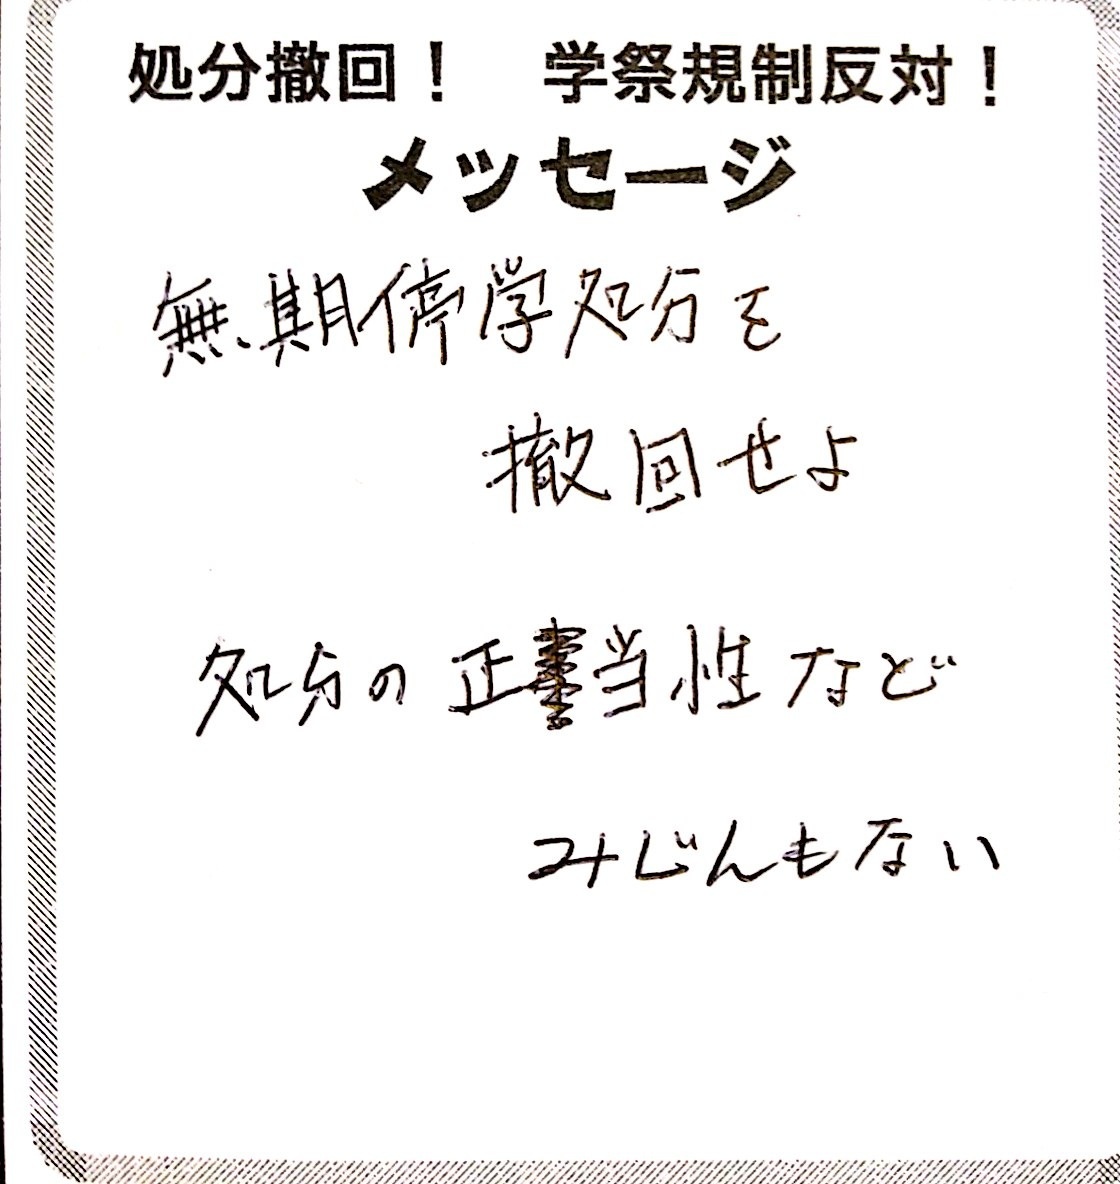 処分撤回！　学祭規制反対！
メッセージ
無期停学処分を
撤回せよ
処分の正当性など
みじんもない